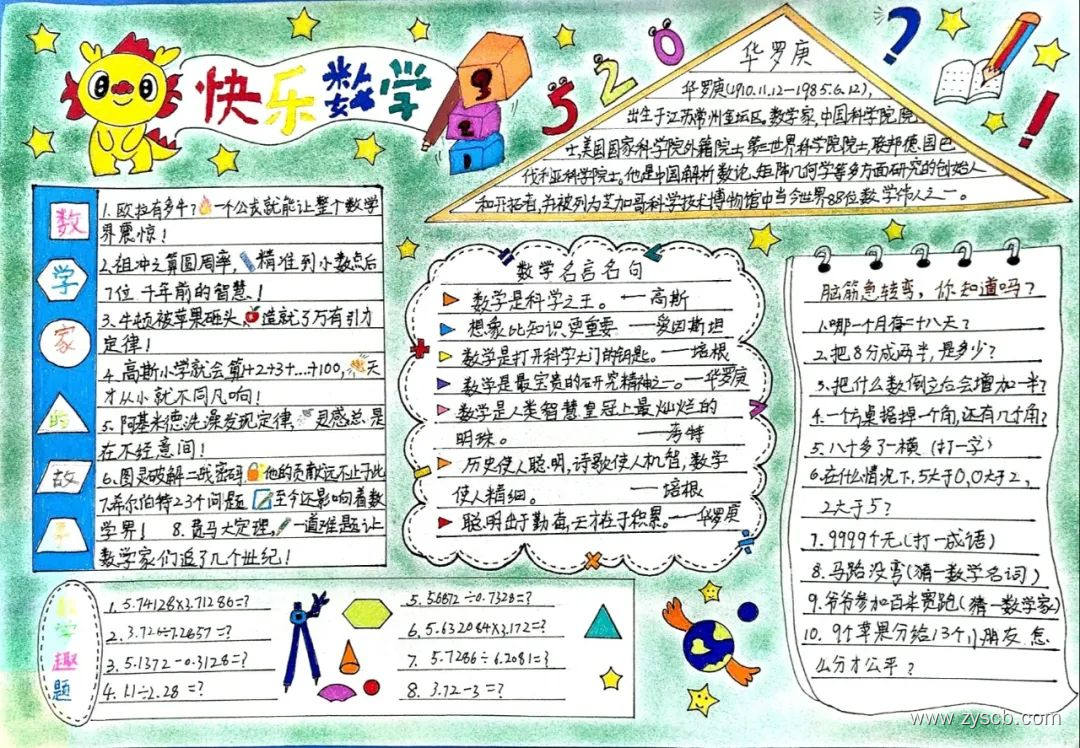 快乐数学
5 2 0
?
!
华罗庚
华罗庚(1910.11.12—1985.6.12),
出生于江苏常州金坛区。数学家,中国科学院院
士,美国国家科学院外籍院士,第三世界科学院院士,联邦德国巴
伐利亚科学院士。他是中国解析数论、矩阵几何学等多方面研究的创始人
和开拓者,并被列为芝加哥科学技术博物馆中当今世界88位数学伟人之一。
数
学
家
的
故
事
1.欧拉有多牛?一个公式就能让整个数学
界震惊!
2.祖冲之算圆周率,精准到小数点后
7位 千年前的智慧!
3.牛顿被苹果砸头,造就了万有引力
定律!
4.高斯小学就会算1+2+3+…+100,天
才从小就不同凡响!
5.阿基米德洗澡发现定律,灵感总是
在不经意间!
6.图灵破解二战密码,他的贡献远不止于此
7.希尔伯特23个问题 至今还影响着数
学界! 8.费马大定理,一道难题让
数学家们追了几个世纪!
数学名言名句
数学是科学之王。 — 高斯
想象比知识更重要 — 爱因斯坦
数学是打开科学大门的钥匙。—培根
数学是最宝贵的研究精神之一。—华罗庚
数学是人类智慧皇冠上最灿烂的
明珠。 —考特
历史使人聪明,诗歌使人机智,数学
使人精细。 —培根
聪明出于勤奋,天才在于积累。—华罗庚
脑筋急转弯,你知道吗?
1.哪一个月有二十八天?
2.把8分成两半,是多少?
3.把什么数倒立后会增加一半?
4.一个方桌据掉一个角,还有几个角?
5.八十多了一横 (打一字)
6.在什么情况下,5大于0,0大于2,
2大于5?
7.9999个无(打一成语)
8.马路没弯(猜一数学名词)
9.爷爷参加百米赛跑(猜一数学家)
10.9个苹果分给13个小朋友 怎
么分才公平?
数
学
趣
题
1.5.74128×3.71286=?
2.3.726÷7.2657=?
3.5.1372-0.3128=?
4.1.1÷2.28=?
5.5.6672÷0.7328=?
6.5.632084×3.172=?
7.5.7286÷6.2081=?
8.3.72-3=?
www.zyscb.com